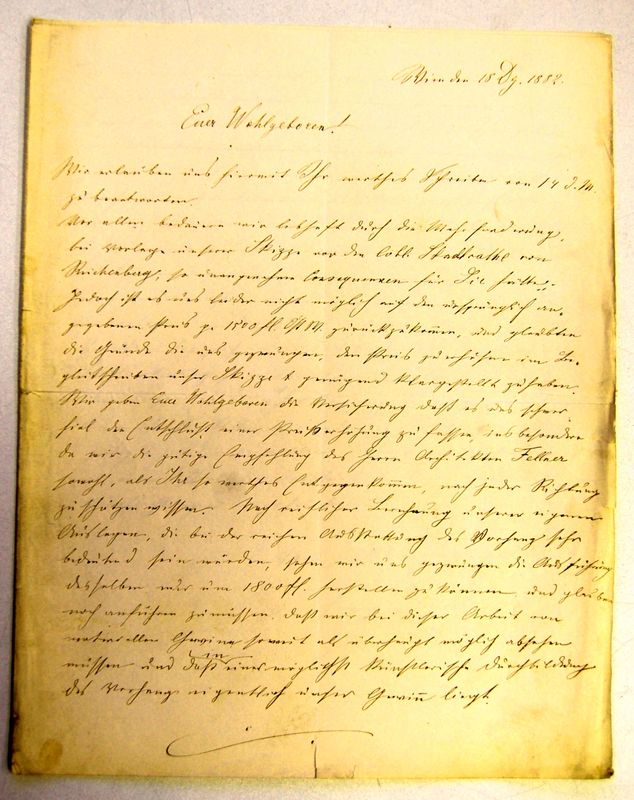 Wien den 18 Dz. 1882.
Euer Wohlgeboren!
Wir erlauben uns hiermit Ihr werthes Schreiben von 14 d. M.
zu beantworten.
Vor allem bedauern wir lebhaft durch die Mehrforderung,
bei Vorlage unserer Skizze vor den löbl. Stadtrathe von
Reichenberg, so unangenehme Consequenzen für Sie hatte,
Jedoch ist es uns leider nicht möglich auf den ursprünglich an-
gegebenen Preis pr 1500 fl ÖW. zurückzukommen, und glaubten
die Gründe die uns gezwungen, den Preis zu erhöhen im Be-
gleitschreiben unser Skizze genügend klargestellt zu haben.
Wir geben Euer Wohlgeboren die Versicherung daß es uns schwer
fiel den Entschluß einer Preiserhöhung zu fassen, insbesondere
da wir die gütige Empfehlung des Herrn Architekten Fellner
sowohl, als Ihr so werthes Entgegenkommen, nach jeder Richtung
zu schätzen wissen. Nach reiflicher Berechnung unserer eigenen
Auslagen, die bei der reichen Ausstattung des Vorhangs sehr
bedeutend sein würden, sehen wir uns gezwungen die Ausführung
desselben nur um 1800 fl. herstellen zu können, und glauben
noch anführen zu müssen, daß wir bei dieser Arbeit von
materiellen Gewinn soweit als überhaupt möglich absehen
müssen und daß in einer möglichst künstlerische Durchbildung
des Vorhangs eigentlich unser Gewinn liegt.